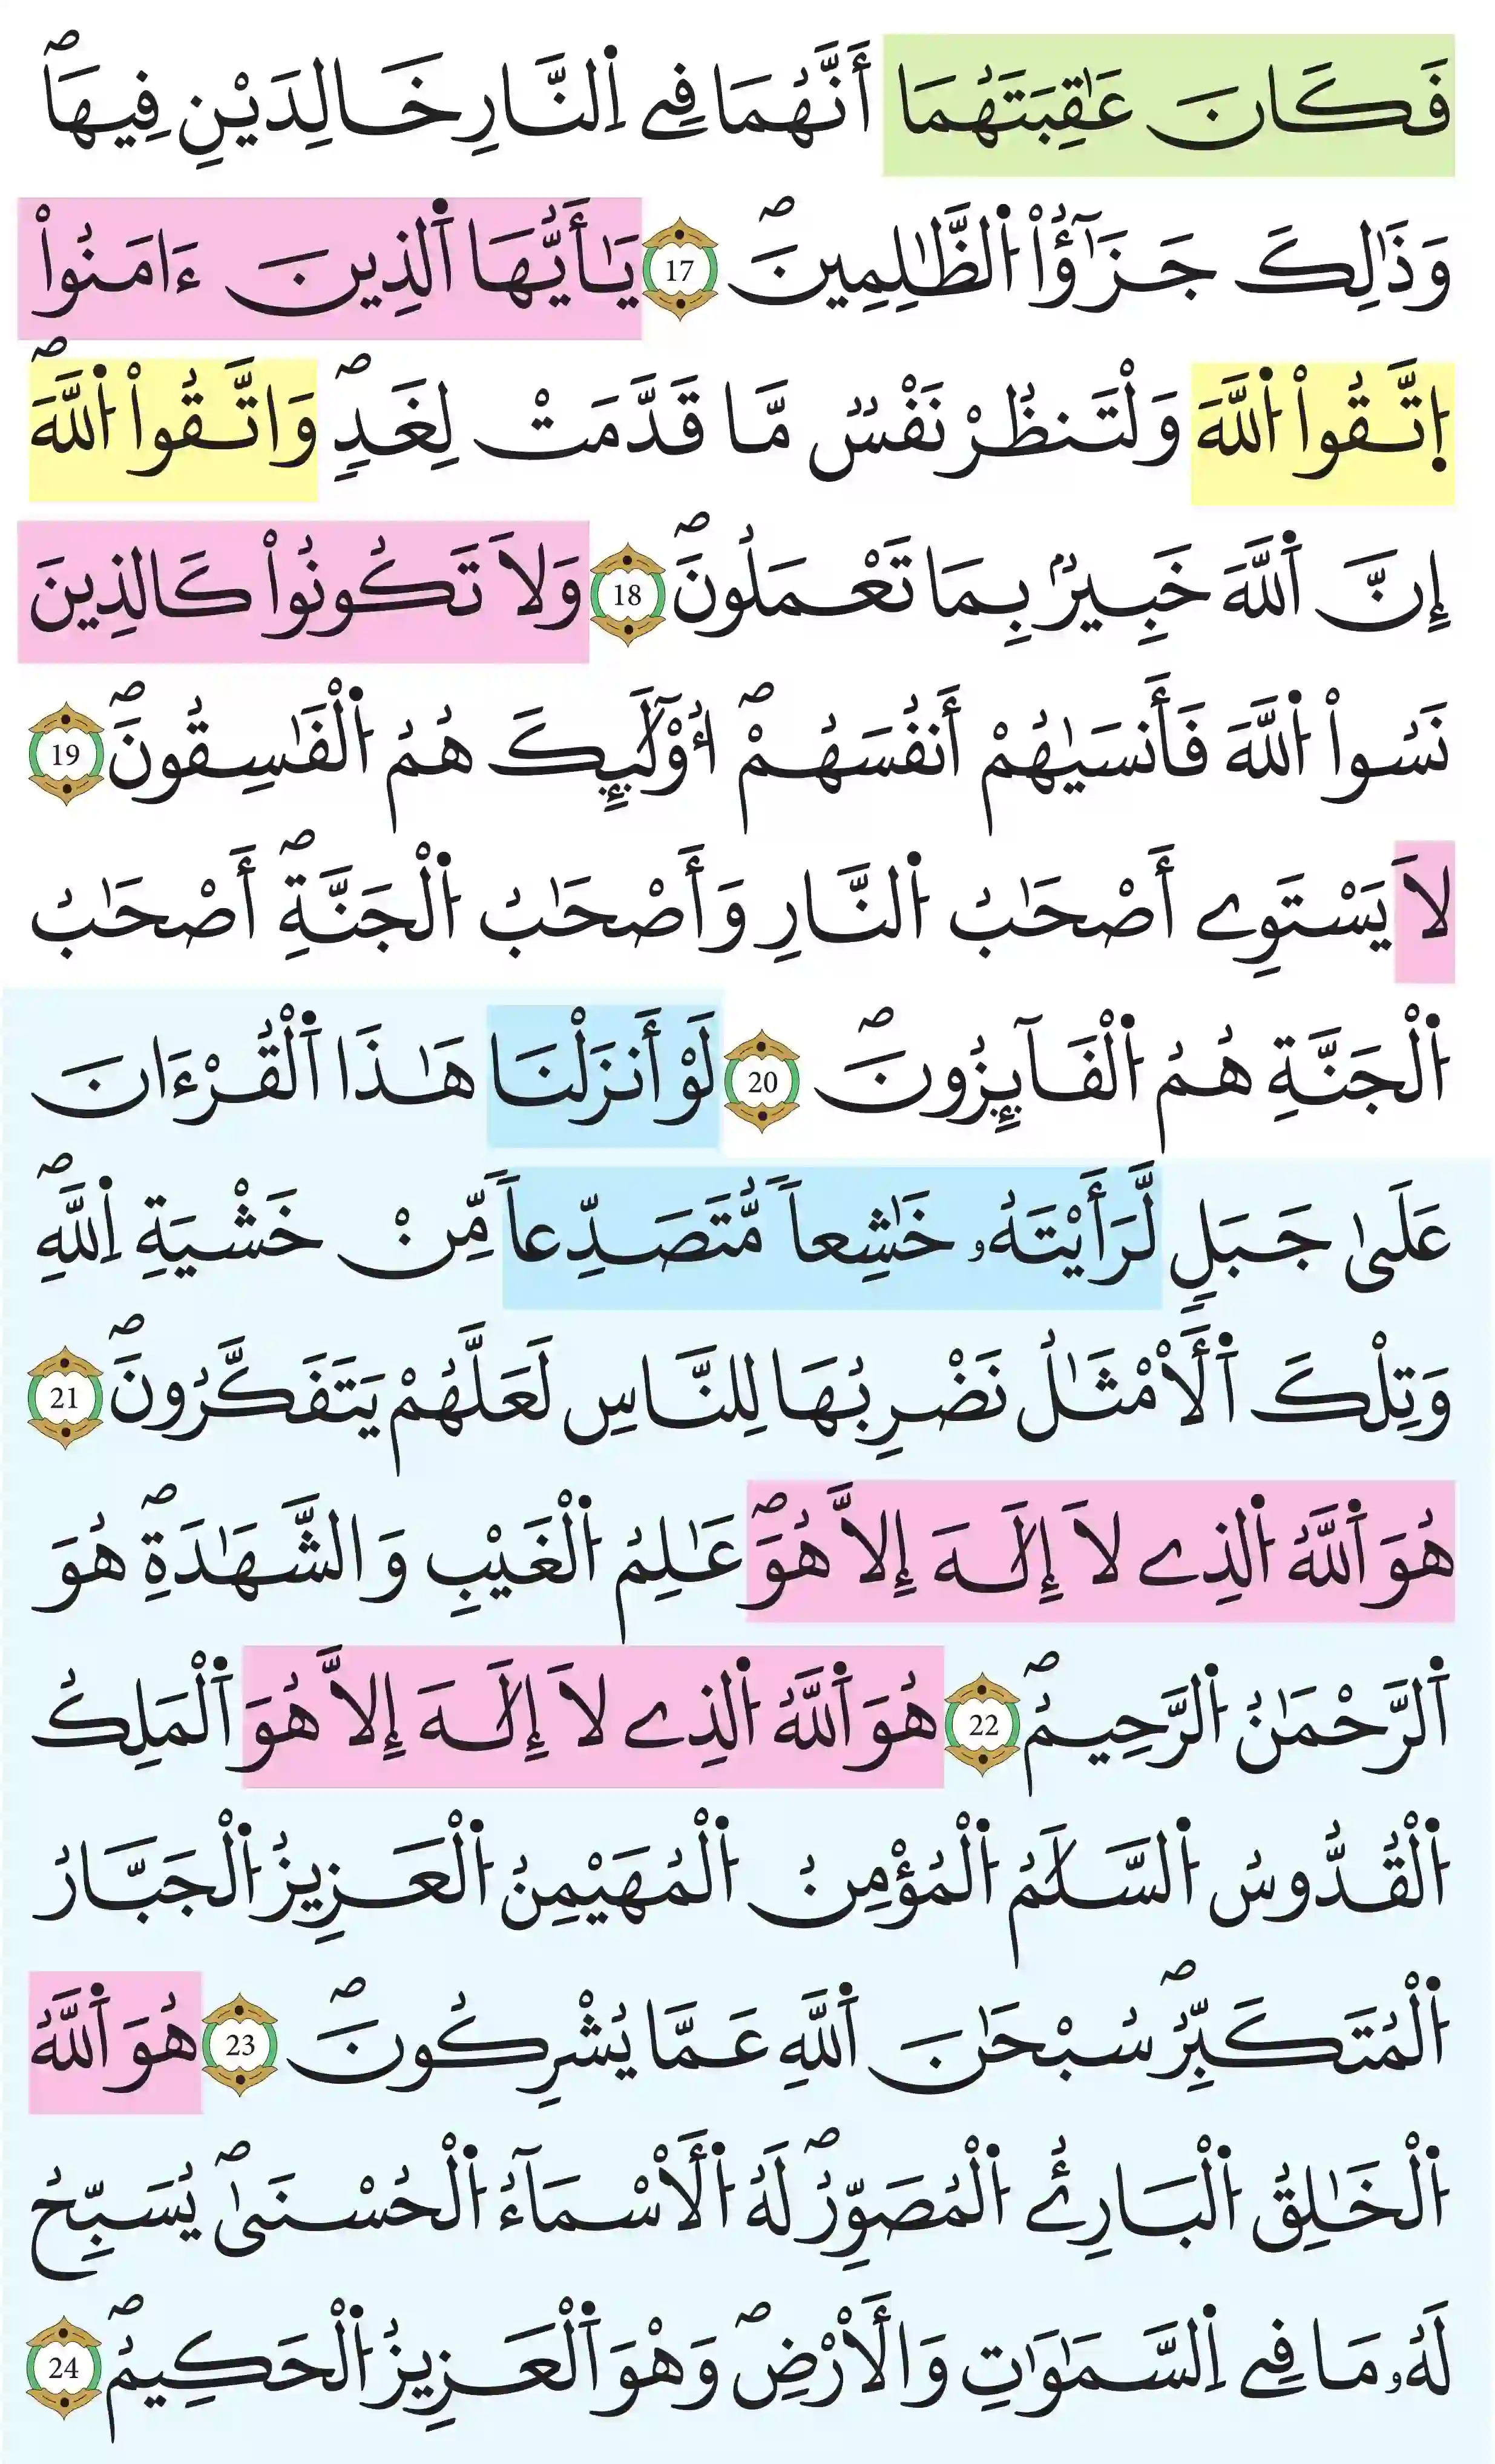 فَكَانَ عَٰقِبَتَهُمَا أَنَّهُمَا فِے اِ۬لنَّارِ خَٰلِدَيْنِ فِيهَاۖ
وَذَٰلِكَ جَزَٰٓؤُاْ اُ۬لظَّٰلِمِينَۖ 17 يَٰأَيُّهَا اَ۬لذِينَ ءَامَنُواْ
اُ۪تَّقُواْ اُ۬للَّهَ وَلْتَنظُرْ نَفْسٞ مَّا قَدَّمَتْ لِغَدٖۖ وَاتَّقُواْ اُ۬للَّهَۖ
إِنَّ اَ۬للَّهَ خَبِيرُۢ بِمَا تَعْمَلُونَۖ 18 وَلَا تَكُونُواْ كَالذِينَ
نَسُواْ اُ۬للَّهَ فَأَنسَىٰهُمْ أَنفُسَهُمْۖ أُوْلَٰٓئِكَ هُمُ اُ۬لْفَٰسِقُونَۖ 19
لَا يَسْتَوِے أَصْحَٰبُ اُ۬لنَّارِ وَأَصْحَٰبُ اُ۬لْجَنَّةِۖ أَصْحَٰبُ
اُ۬لْجَنَّةِ هُمُ اُ۬لْفَآئِزُونَۖ 20 لَوْ أَنزَلْنَا هَٰذَا اَ۬لْقُرْءَانَ
عَلَىٰ جَبَلٖ لَّرَأَيْتَهُۥ خَٰشِعاٗ مُّتَصَدِّعاٗ مِّنْ خَشْيَةِ اِ۬للَّهِۖ
وَتِلْكَ اَ۬لَامْثَٰلُ نَضْرِبُهَا لِلنَّاسِ لَعَلَّهُمْ يَتَفَكَّرُونَۖ 21
هُوَ اَ۬للَّهُ اُ۬لذِے لَا إِلَٰهَ إِلَّا هُوَۖ عَٰلِمُ اُ۬لْغَيْبِ وَالشَّهَٰدَةِۖ هُوَ
اَ۬لرَّحْمَٰنُ اُ۬لرَّحِيمُۖ 22 هُوَ اَ۬للَّهُ اُ۬لذِے لَا إِلَٰهَ إِلَّا هُوَ اَ۬لْمَلِكُ
اُ۬لْقُدُّوسُ اُ۬لسَّلَٰمُ اُ۬لْمُؤْمِنُ اُ۬لْمُهَيْمِنُ اُ۬لْعَزِيزُ اُ۬لْجَبَّارُ
اُ۬لْمُتَكَبِّرُۖ سُبْحَٰنَ اَ۬للَّهِ عَمَّا يُشْرِكُونَۖ 23 هُوَ اَ۬للَّهُ
اُ۬لْخَٰلِقُ اُ۬لْبَارِئُ اُ۬لْمُصَوِّرُۖ لَهُ اُ۬لَاسْمَآءُ اُ۬لْحُسْنَىٰۖ يُسَبِّحُ
لَهُۥ مَا فِے اِ۬لسَّمَٰوَٰتِ وَالَارْضِۖ وَهْوَ اَ۬لْعَزِيزُ اُ۬لْحَكِيمُۖ 24